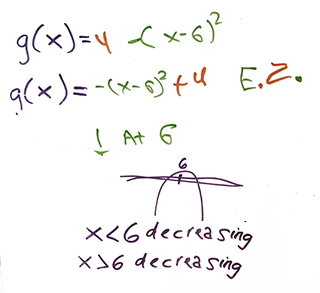 g(x)=4 -(x-6)²
g(x)=-(x-6)²+4 E.Z.
↓ At 6
6
x<6 decreasing
x>6 decreasing